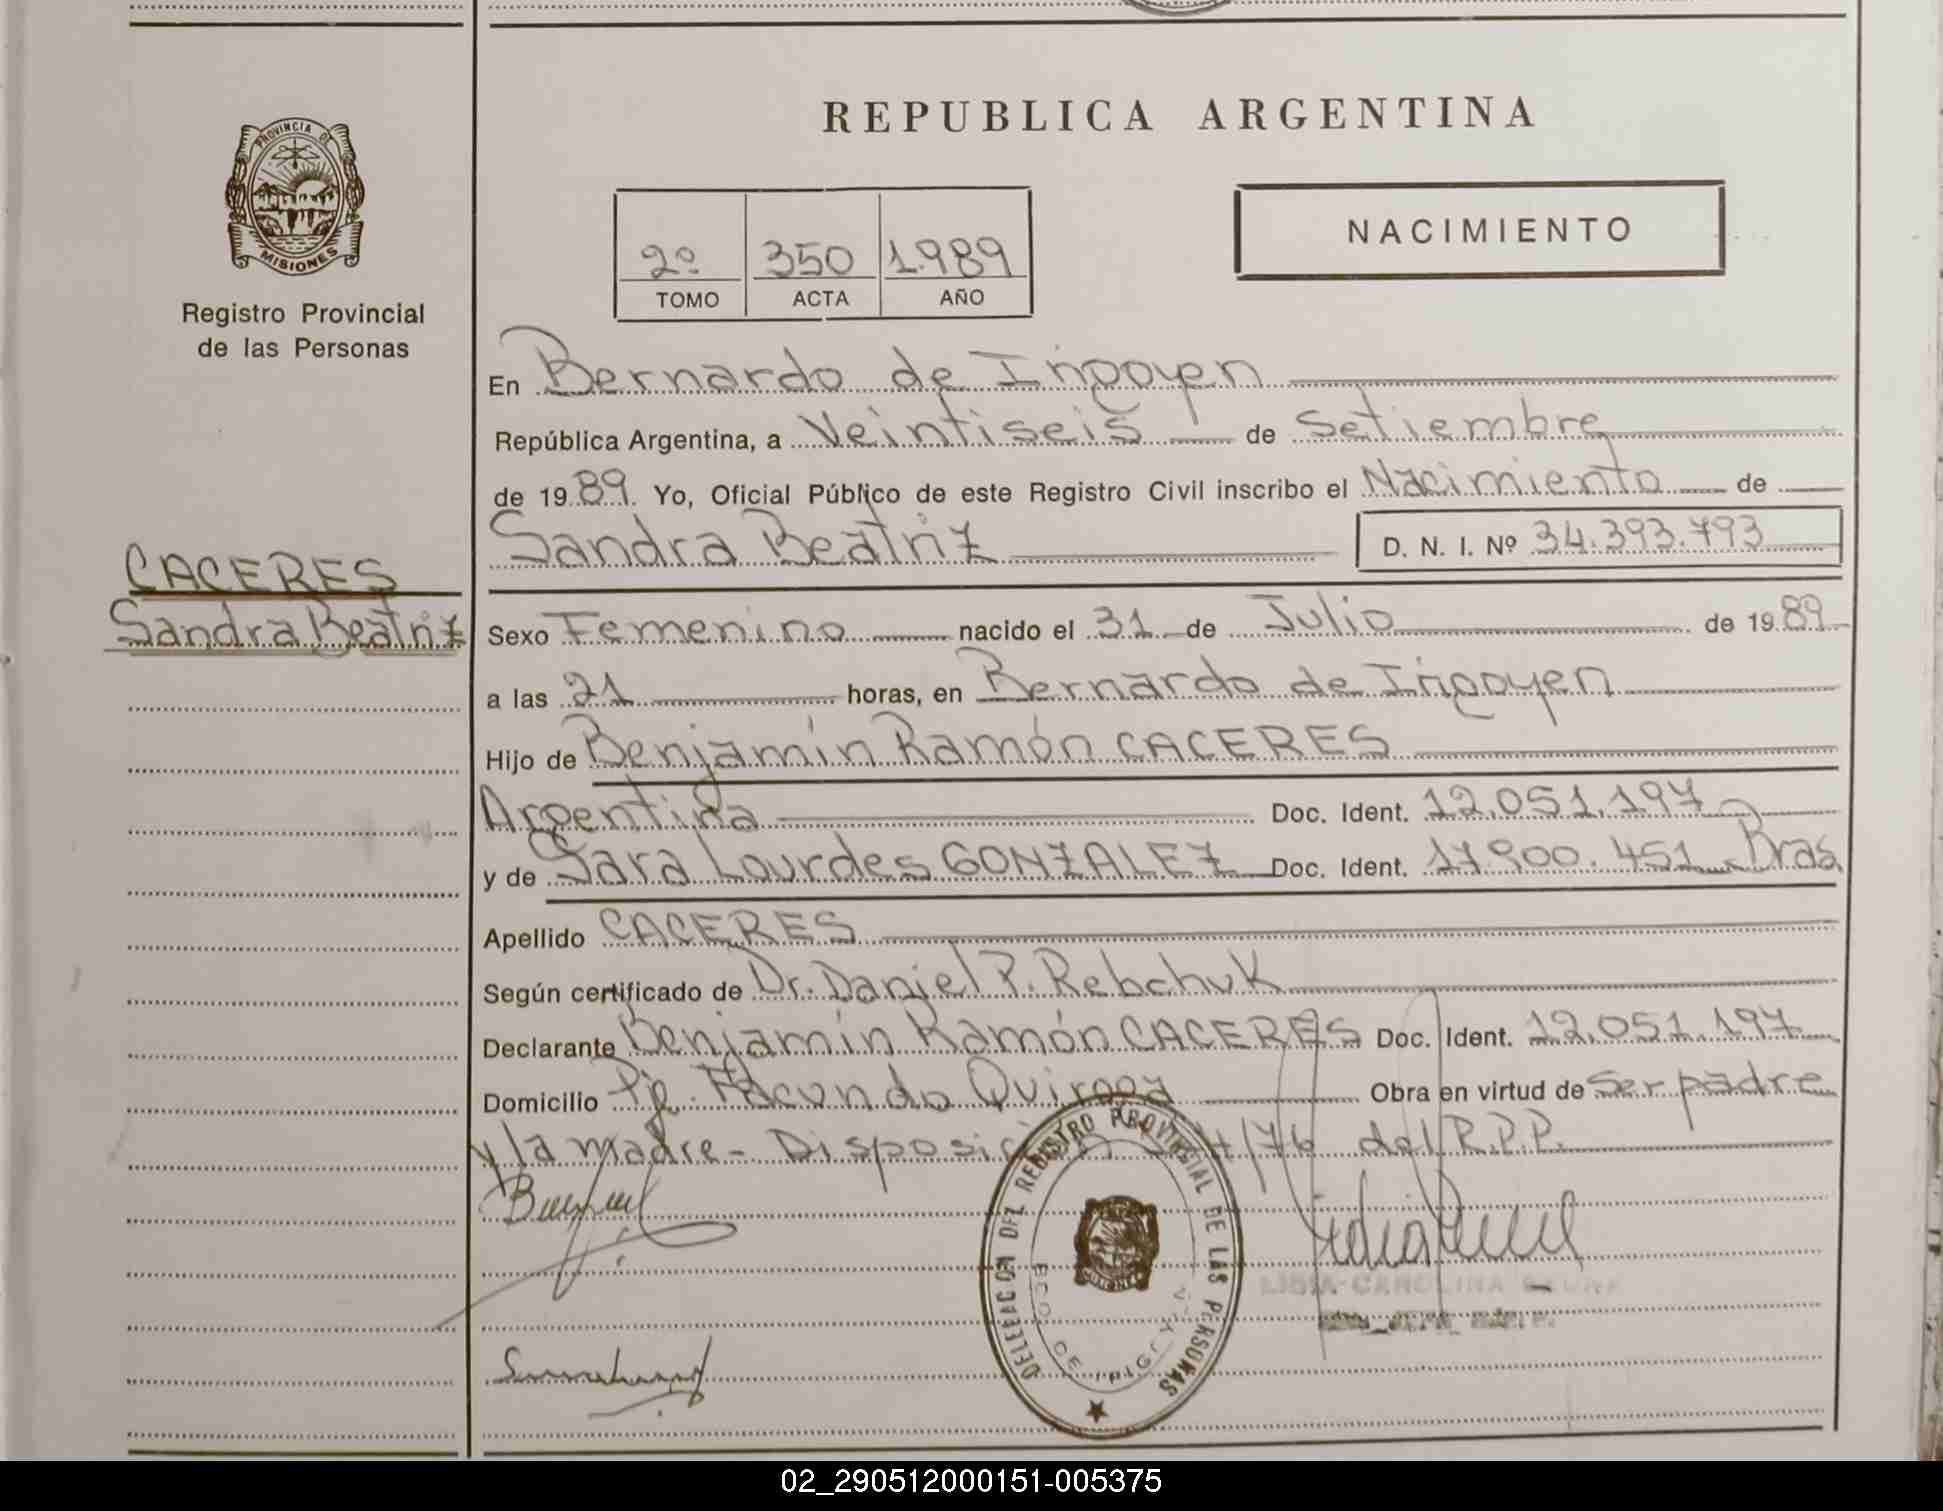 REPUBLICA ARGENTINA
PROVINCIA DE
MISIONES
Registro Provincial
de las Personas
2º 350 1.989
TOMO ACTA AÑO
NACIMIENTO
En Bernardo de Irigoyen
República Argentina, a Veintiseis de Setiembre
de 1989. Yo, Oficial Público de este Registro Civil inscribo el Nacimiento de
Sandra Beatriz D. N. I. Nº 34.393.793
CACERES
Sandra Beatriz
Sexo Femenino nacido el 31 de Julio de 1989
a las 21 horas, en Bernardo de Irigoyen
Hijo de Benjamín Ramón CACERES
Argentina Doc. Ident. 12.051.197
y de Sara Lourdes GONZALEZ Doc. Ident. 17.900.451 Bras
Apellido CACERES
Según certificado de Dr. Daniel P. Rebchuk
Declarante Benjamín Ramón CACERES Doc. Ident. 12.051.197
Domicilio Pje. Facundo Quiroga Obra en virtud de Ser padre
y la madre - Disposición /76 del R.P.P.
DELEGACION DEL REGISTRO PROVINCIAL DE LAS PERSONAS
BDO. DE IRIGOYEN
MISIONES
LIDIA CAROLINA
02_290512000151-005375